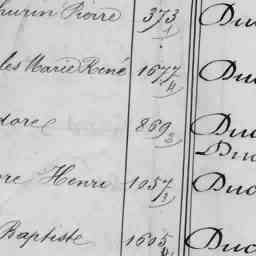 thurin Pierre 373/1 Du
les Marie René 1677/4 Du
dore 869/3 Du
Du
re Henri 1057/3 Duc
Baptiste 1605/4 Duc